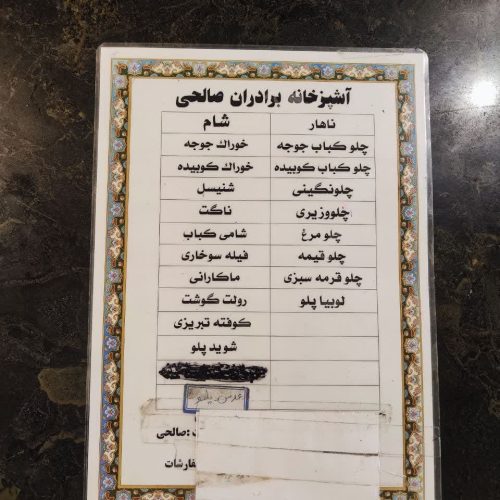 آشپزخانه برادران صالحی
ناهار شام
چلو کباب جوجه خوراك جوجه
چلو کباب کوبیده خوراك کوبیده
چلونگینی شنیسل
چلووزیری ناگت
چلو مرغ شامی کباب
چلو قیمه فیله سوخاری
چلو قرمه سبزی ماکارانی
لوبیا پلو رولت گوشت
کوفته تبریزی
شوید پلو
عدس پلو
صالحی: